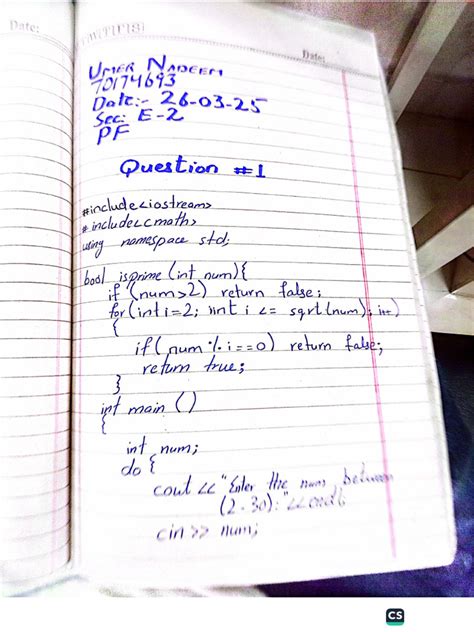 Date:
Date:
UMER NADEEM
70174693
Date:- 26-03-25
Sec: E-2
PF
Question #1
#include<iostream>
#include<cmath>
using namespace std;
bool isprime (int num){
if (num>2) return false;
for (int i=2; int i <= sqrt(num); i++)
{
if ( num % i ==0) return false;
return true;
}
int main ()
{
int num;
do {
cout << "Enter the num between
(2-30):"<<endl;
cin >> num;
CS